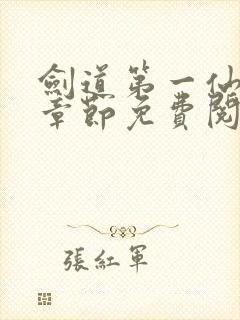 劍道第一仙
章節免費閱
張紅軍